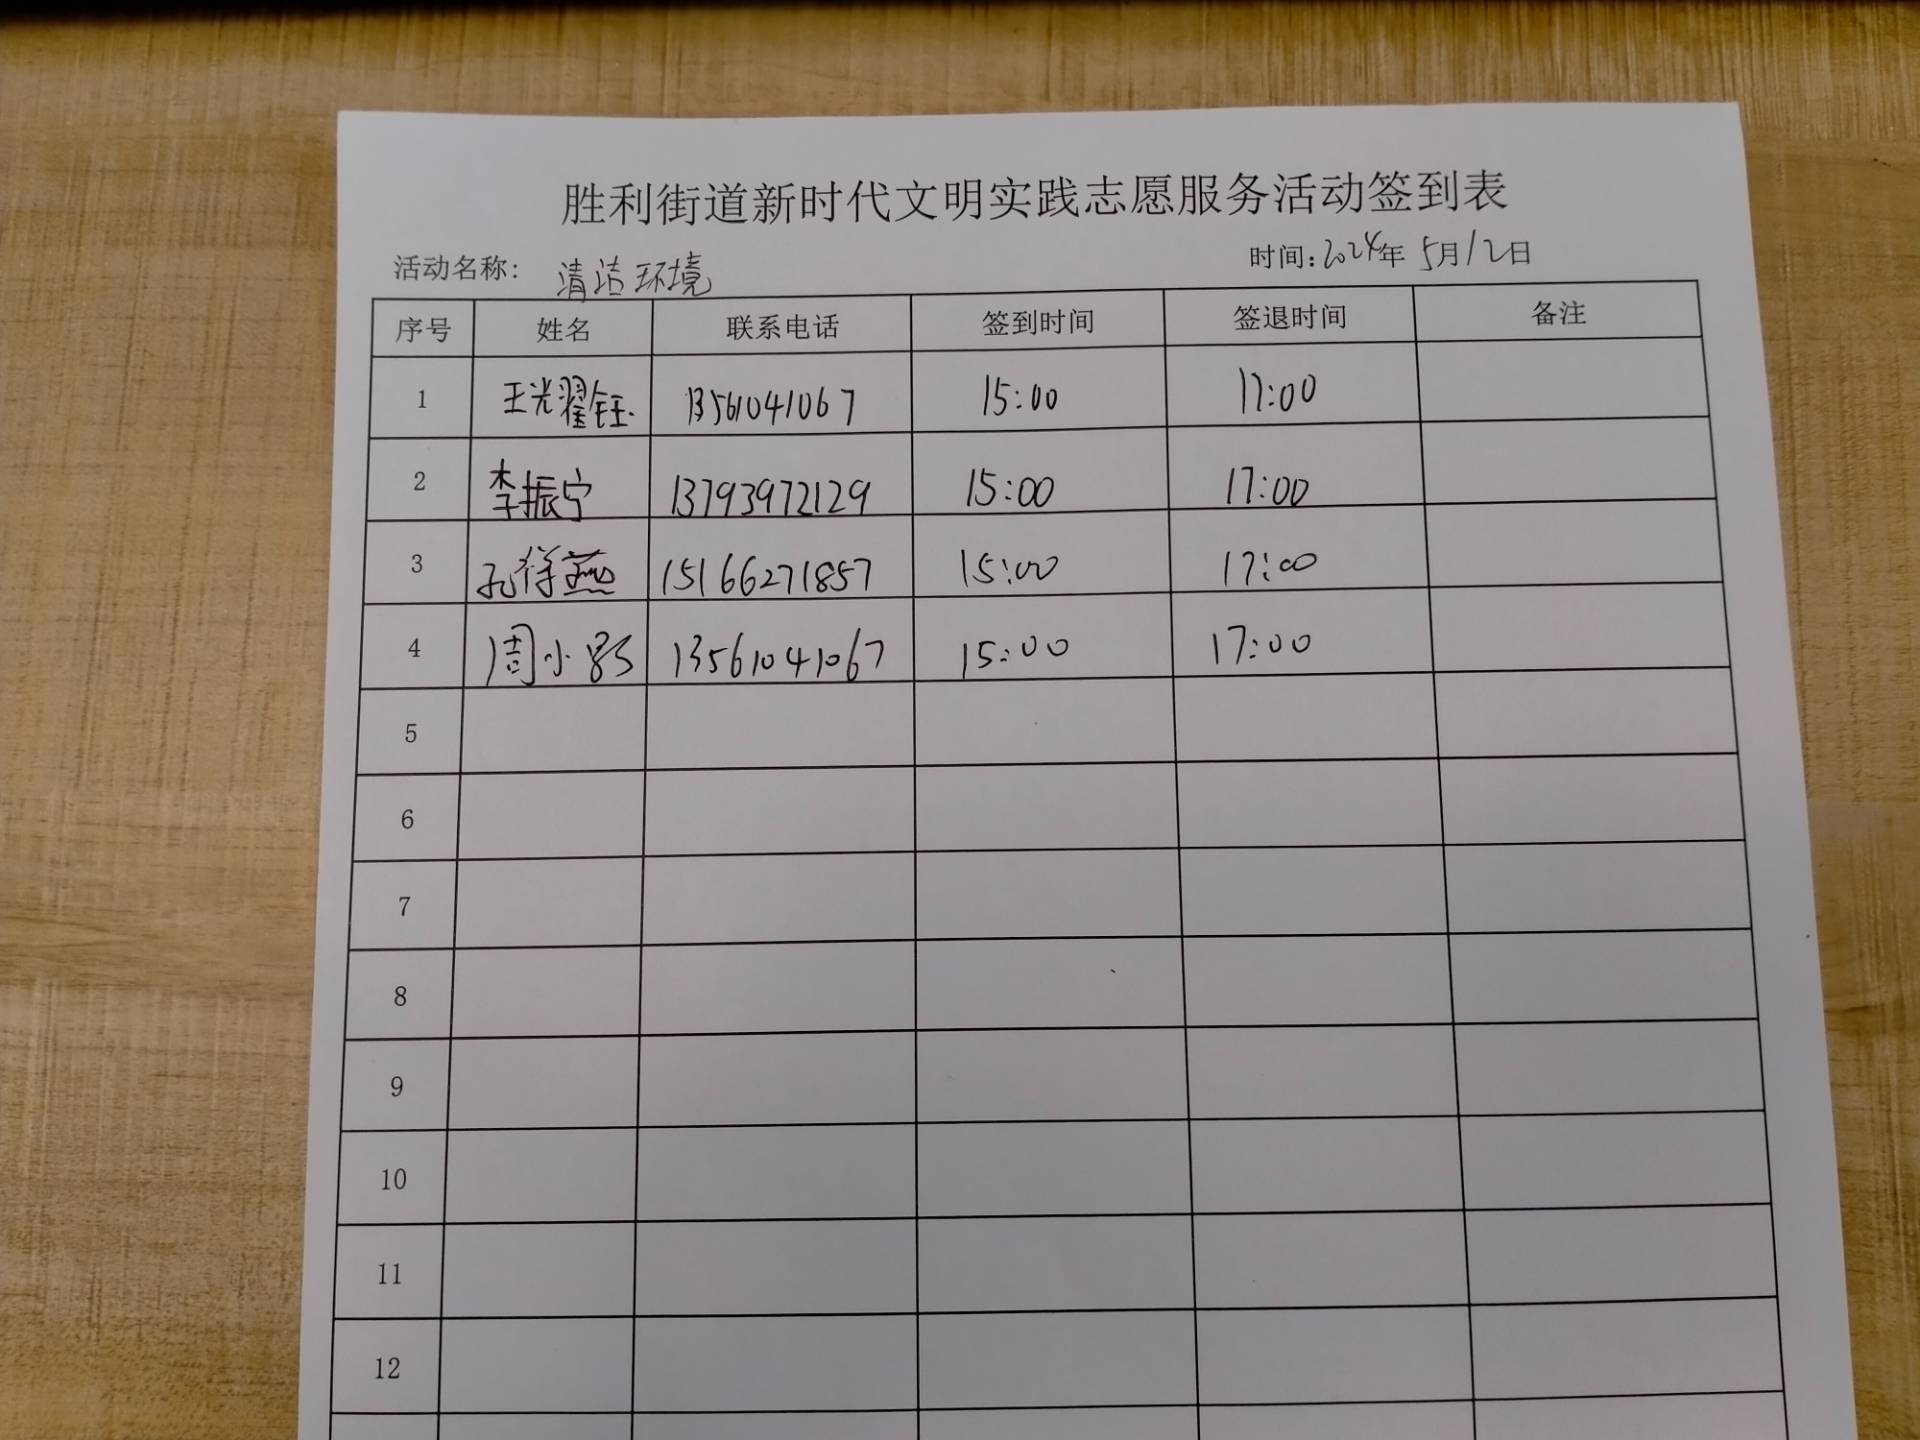 胜利街道新时代文明实践志愿服务活动签到表
活动名称: 清洁环境 时间:2024年5月12日
序号 姓名 联系电话 签到时间 签退时间 备注
1 王光翟钰 13561041067 15:00 17:00
2 李振宁 13793972129 15:00 17:00
3 孔祥燕 15166271857 15:00 17:00
4 周小 13561041067 15:00 17:00
5
6
7
8
9
10
11
12